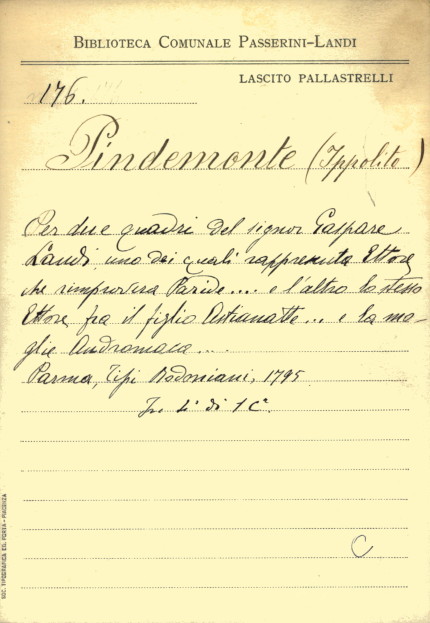 BIBLIOTECA COMUNALE PASSERINI-LANDI
LASCITO PALLASTRELLI
176.
Pindemonte (Ippolito)
Per due quadri del signor Gaspare
Landi, uno dei quali rappresenta Ettore
che rimprovera Paride.... e l'altro lo stesso
Ettore, fra il figlio Astianatte... e la mo-
glie Andromaca...
Parma, Tipi Bodoniani, 1795
In 4° di 1 C.
C
SOC. TIPOGRAFICA ED. PORTA - PIACENZA